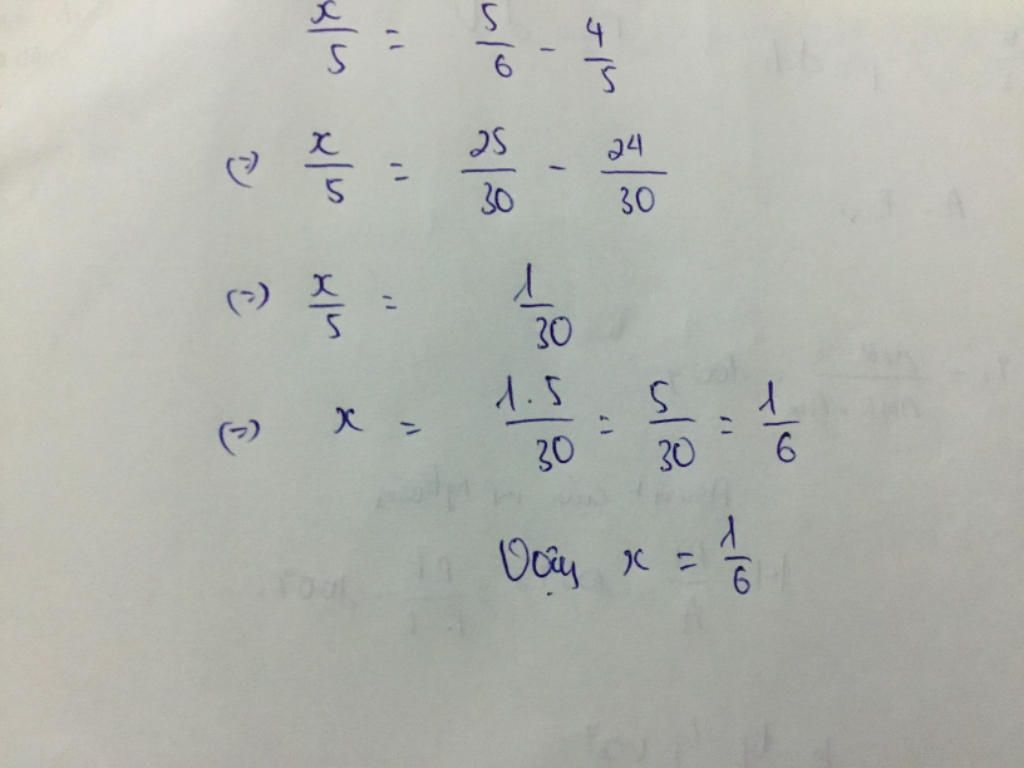 x/5 = 5/6 - 4/5
(=) x/5 = 25/30 - 24/30
(=) x/5 = 1/30
(=) x = 1.5/30 = 5/30 = 1/6
Vậy x = 1/6